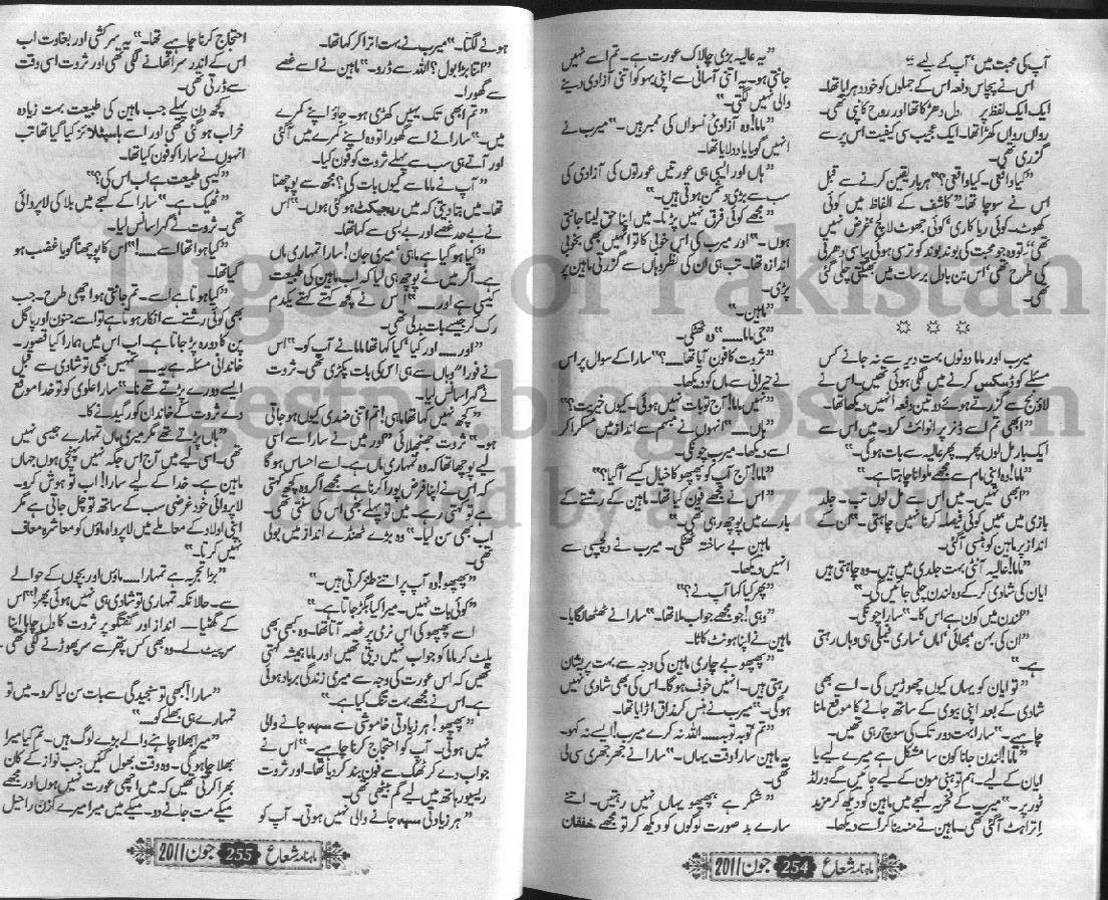 آپ کی محبت میں، آپ کے لیے"
اس نے پچاس دفعہ اس کے جملوں کو خود دہرایا تھا۔
ایک ایک لفظ پر دل دھڑکا تھا اور روح کانپی تھی۔
رواں رواں کھڑا تھا۔ ایک عجیب سی کیفیت اس پر سے
گزری تھی۔
"کیا واقعی۔ کیا واقعی؟" ہر بار یقین کرنے سے قبل
اس نے سوچا تھا۔ "کاشف کے الفاظ میں کوئی
کھوٹ، کوئی ریا کاری، کوئی جھوٹ لالچ، غرض نہیں
تھی، تو وہ جو محبت کی بوند بوند کو ترسی ہوئی پیاسی دھرتی
کی طرح تھی، اس بن بادل برسات میں بھیگتی چلی گئی
تھی۔
☼ ☼ ☼
میرب اور ماما دونوں بہت دیر سے نہ جانے کس
مسئلے کو ڈسکس کرنے میں لگی ہوئی تھیں۔ اس نے
لاؤنج سے گزرتے ہوئے دو تین دفعہ انہیں دیکھا تھا۔
"ابھی تم اسے ڈنر پر انوائٹ کرو۔ میں اس سے
ایک بار مل لوں پھر۔ پھر عالیہ سے بات ہوگی۔"
"ماما! وہ اپنی مام سے مجھے ملوانا چاہتا ہے۔"
"ابھی نہیں۔ میں اس سے مل لوں تب۔ جلد
بازی میں میں کوئی فیصلہ کرنا نہیں چاہتی۔" ان کے
انداز پر ماہین کو ہنسی آگئی۔
"ماما! عالیہ آنٹی بہت جلدی میں ہیں۔ وہ چاہتی ہیں
ایان کی شادی کر کے وہ لندن چلی جائیں گی۔"
"لندن میں کون ہے اس کا۔" سارا چونکی۔
"ان کی بہن، بھائی، اماں، ساری فیملی ہی وہاں رہتی
ہے۔"
"تو ایان کو یہاں کیوں چھوڑیں گی۔ اسے بھی
شادی کے بعد اپنی بیوی کے ساتھ جانے کا موقع ملنا
چاہیے۔" سارا بہت دور تک کی سوچ رہی تھیں۔
"ماما! لندن جانا کون سا مشکل ہے میرے لیے یا
ایان کے لیے۔ ہم تو ہنی مون کے لیے جائیں گے ورلڈ
ٹور پر۔" میرب کے فخریہ لہجے میں ماہین کو دیکھ کر مزید
اتراہٹ آگئی تھی۔ ماہین نے منہ بنا کر اسے دیکھا۔
"یہ عالیہ بڑی چالاک عورت ہے۔ تم اسے نہیں
جانتی ہو۔ یہ اتنی آسانی سے اپنی بہو کو اتنی آزادی دینے
والی نہیں لگتی۔"
"ماما! وہ آزادئ نسواں کی ممبر ہیں۔" میرب نے
انہیں گویا یاد دلایا تھا۔
"ہاں اور ایسی ہی عورتیں عورتوں کی آزادی کی
سب سے بڑی دشمن ہوتی ہیں۔"
"مجھے کوئی فرق نہیں پڑتا۔ میں اپنا حق لینا جانتی
ہوں۔" اور میرب کی اس خوبی کا تو انہیں بھی بخوبی
اندازہ تھا۔ تب ہی ان کی نظر وہاں سے گزرتی ماہین پر
پڑی۔
"ماہین۔"
"جی ماما......" وہ ٹھٹکی۔
"ثروت کا فون آیا تھا......؟" سارا کے سوال پر اس
نے حیرانی سے ماں کو دیکھا۔
"نہیں ماما! آج تو بات نہیں ہوئی۔ کیوں خیریت؟"
"ہاں......" انہوں نے مبہم سے انداز میں مسکرا کر
اسے دیکھا۔ میرب چونکی۔
"ماما! آج آپ کو پھپھو کا خیال کیسے آگیا؟"
"اس نے مجھے فون کیا تھا۔ ماہین کے رشتے کے
بارے میں پوچھ رہی تھی۔"
ماہین بے ساختہ ٹھٹکی۔ میرب نے دلچسپی سے
انہیں دیکھا۔
"پھر کیا کہا آپ نے؟"
"وہی! جو مجھے جواب ملا تھا۔" سارا نے ٹھٹھا لگایا۔
ماہین نے اپنا ہونٹ کاٹا۔
"پھپھو بے چاری ماہین کی وجہ سے بہت پریشان
رہتی ہیں۔ انہیں خوف ہوگا۔ اس کی بھی شادی نہیں
ہوگی۔" میرب نے ہنس کر مذاق اڑایا تھا۔
"تم توبہ توبہ...... اللہ نہ کرے میرب! ایسے نہ کہو۔
یہ ماہین سارا وقت یہاں۔" سارا نے جھرجھری سی لی
تھی۔
"شکر ہے پھپھو یہاں نہیں رہتیں۔ اتنے
سارے بد صورت لوگوں کو دیکھ کر تو مجھے خفقان
ماہنامہ شعاع 254 جون 2011
ہونے لگتا۔" میرب نے بہت اترا کر کہا تھا۔
"اتنا بڑا بول؟ اللہ سے ڈرو۔" ماہین نے اسے غصے
سے گھورا۔
"تم ابھی تک یہیں کھڑی ہو۔ جاؤ اپنے کمرے
میں۔" سارا نے اسے گھورا تو وہ اپنے کمرے میں آگئی
اور آتے ہی سب سے پہلے ثروت کو فون کیا۔
"آپ نے ماما سے کیوں بات کی؟ مجھ سے پوچھنا
تھا۔ میں بتا دیتی کہ میں ریجیکٹ ہو گئی ہوں۔" اس
نے بے حد غصے اور بے بسی سے کہا تھا۔
"کیا ہو گیا ہے ماہی، میری جان! سارا تمہاری ماں
ہے۔ اگر میں نے پوچھ ہی لیا کہ اب ماہین کی طبیعت
کیسی ہے اور......" اس نے کچھ کہتے کہتے یکدم
رک کر جیسے بات بدلی تھی۔
"اور...... اور کیا، کیا کہا تھا ماما نے آپ کو۔" اس
نے فوراً وہاں سے ہی اس کی بات پکڑی تھی۔ ثروت
نے گہرا سانس لیا۔
"کچھ نہیں کہا تھا ماہی! تم اتنی ضدی کیوں ہو جاتی
ہو۔" ثروت جھنجلائی "اور میں نے سارا سے اسی
لیے پوچھا تھا کہ وہ تمہاری ماں ہے۔ اسے احساس ہوگا
کہ اس نے اپنا فرض پورا کرنا ہے۔ مجھے اگر وہ کچھ کہتی
ہے تو کہتی رہے۔ میں تو پہلے بھی اس کی سنتی تھی۔
اب بھی سن لیا۔" وہ بڑے ٹھنڈے انداز میں بولی
تھی۔
"پھپھو! وہ آپ پر اتنے طنز کرتی ہیں۔"
"کوئی بات نہیں۔ میرا کیا بگڑ جانا ہے۔"
اسے پھپھو کی اس نرمی پر غصہ آتا تھا۔ وہ کبھی بھی
پلٹ کر ماما کو جواب نہیں دیتی تھیں اور ماما ہمیشہ کہتی
تھیں کہ اس عورت کی وجہ سے میری زندگی برباد ہوئی
ہے۔ اس نے مجھے بہت تنگ کیا ہے۔
"پھپھو! ہر زیادتی خاموشی سے سہہ جانے والی
نہیں ہوتی۔ آپ کو احتجاج کرنا چاہیے۔" اس نے
جواب دے کر ٹھک سے فون بند کر دیا تھا۔ اور ثروت
ریسیور ہاتھ میں لیے گم بیٹھی تھی۔
"ہر زیادتی سہہ جانے والی نہیں ہوتی۔ آپ کو
احتجاج کرنا چاہیے تھا۔" یہ سرکشی اور بغاوت اب
اس کے اندر سر اٹھانے لگی تھی اور ثروت اسی وقت
سے ڈرتی تھی۔
کچھ دن پہلے جب ماہین کی طبیعت بہت زیادہ
خراب ہو گئی تھی اور اسے ہاسپٹلائز کیا گیا تھا تب
انہوں نے سارا کو فون کیا تھا۔
"کیسی طبیعت ہے اب اس کی؟"
"ٹھیک ہے۔" سارا کے لہجے میں بلا کی لاپروائی
تھی۔ ثروت نے گہرا سانس لیا۔
"کیا ہوا تھا اسے......!" اس کا پوچھنا گویا غضب ہو
گیا تھا۔
"کیا ہونا ہے اسے۔ تم جانتی ہو اچھی طرح۔ جب
بھی کوئی رشتے سے انکار ہوتا ہے تو اسے جنون اور پاگل
پن کا دورہ پڑ جاتا ہے۔ اب اس میں ہمارا کیا قصور۔
خاندانی مسئلہ ہے یہ...... تمہیں بھی تو شادی سے قبل
ایسے دورے پڑتے تھے نا۔" سارا علوی کو تو خدا موقع
دے ثروت کے خاندان کو رگیدنے کا۔
"ہاں پڑتے تھے مگر میری ماں تمہارے جیسی نہیں
تھی۔ اسی لیے میں آج اس جگہ نہیں پہنچی ہوں جہاں
ماہین ہے۔ خدا کے لیے سارا! اب تو ہوش کرو۔
لاپروائی خود غرضی سب کے ساتھ تو چل جاتی ہے مگر
اپنی اولاد کے معاملے میں لاپرواہ ماؤں کو معاشرہ معاف
نہیں کرتا۔"
"بڑا تجربہ ہے تمہارا...... ماؤں اور بچوں کے حوالے
سے۔ حالانکہ تمہاری تو شادی ہی نہیں ہوئی پھر!" اس
کے گھٹیا...... انداز اور گفتگو پر ثروت کا دل چاہا اپنا
سر پیٹ لے۔ وہ بھی کس پتھر سے سر پھوڑنے لگی تھی۔
"سارا! کبھی تو سنجیدگی سے بات سن لیا کرو۔ میں تو
تمہارے ہی بھلے کو......"
"میرا بھلا چاہنے والے بڑے لوگ ہیں۔ تم کیا میرا
بھلا چاہو گی۔ وہ وقت بھول گئیں جب نواز کے کان
بھرا کرتی تھیں کہ میں اچھی عورت نہیں ہوں اور مجھے
میکے مت جانے دو۔ میکے میں میرا میرے کزن راحیل
ماہنامہ شعاع 255 جون 2011
Digests of Pakistan